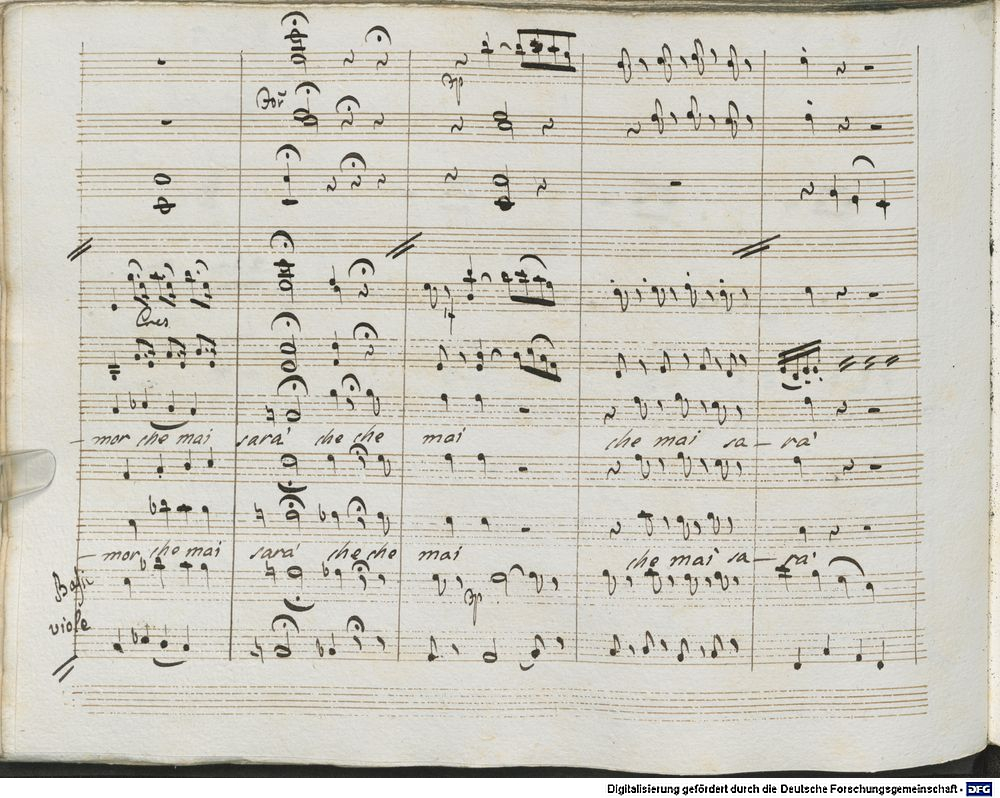 For
Sp
Cres
mor che mai sara' che che mai che mai sa - ra'
mor che mai sará che che mai che mai sa - ra'
Sp
Bassi
viole
Digitalisierung gefördert durch die Deutsche Forschungsgemeinschaft - DFG